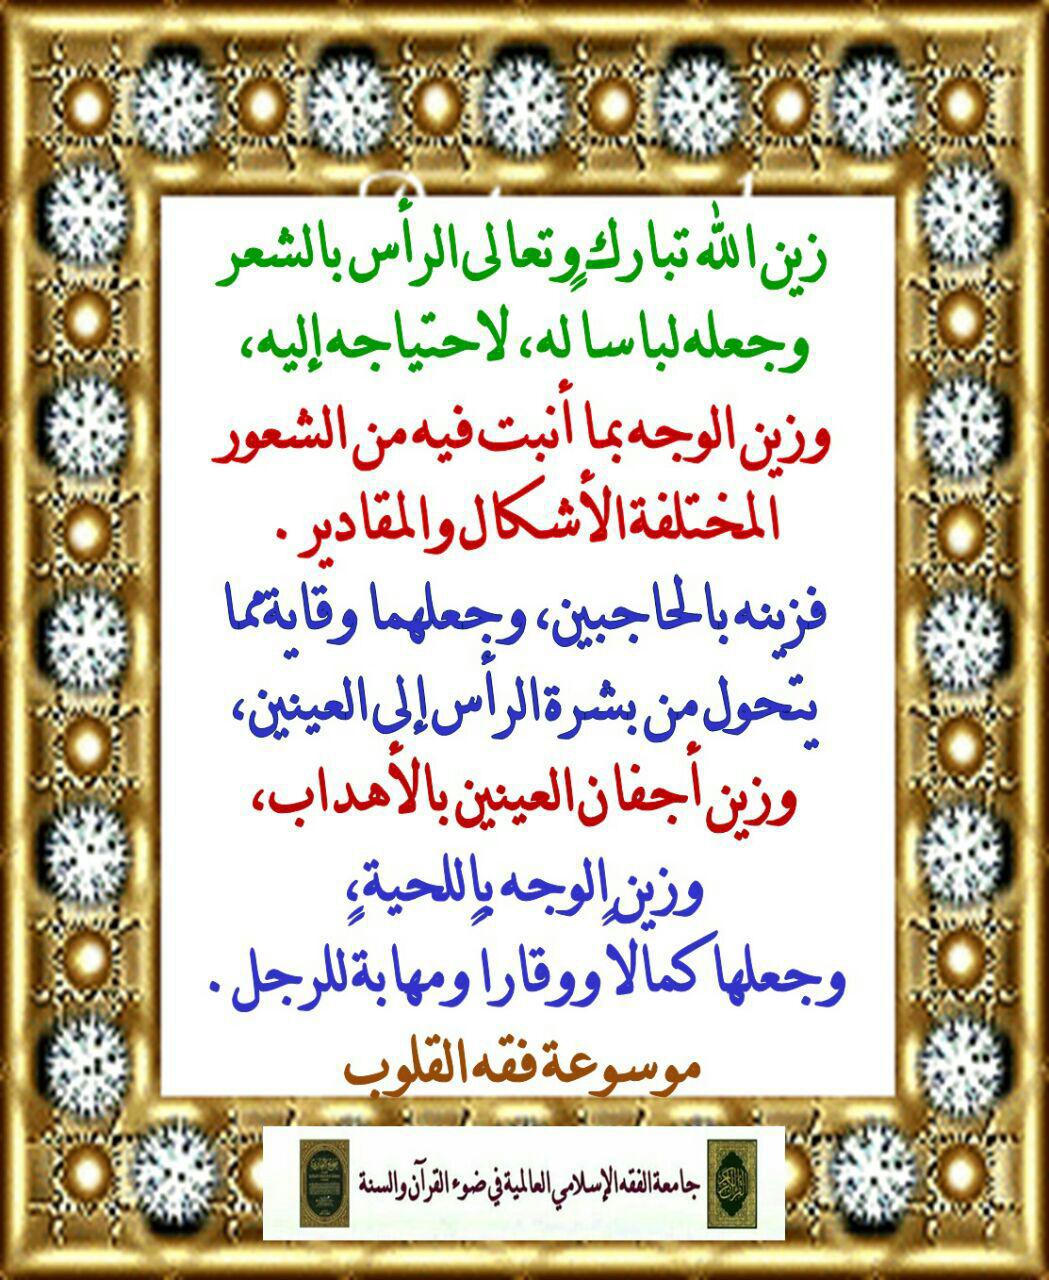 زين الله تبارك وتعالى الرأس بالشعر
وجعله لباسا له، لاحتياجه إليه،
وزين الوجه بما أنبت فيه من الشعور
المختلفة الأشكال والمقادير .
فزينه بالحاجبين، وجعلهما وقاية مما
يتحول من بشرة الرأس إلى العينين،
وزين أجفان العينين بالأهداب،
وزين الوجه باللحية،
وجعلها كمالا ووقارا ومهابة للرجل .
موسوعة فقه القلوب
جامعة الفقه الإسلامي العالمية في ضوء القرآن والسنة